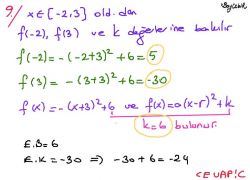 9/ x∈[-2,3] old.dan
f(-2), f(3) ve k değerlerine bakılır
f(-2) = -(-2+3)²+6 = 5
f(3) = -(3+3)²+6 = -30
f(x) = -(x+3)²+6 ve f(x)=a(x-r)²+k
k=6 bulunur.
E.B=6
E.K=-30 ⇒ -30+6=-24
CEVAP:C